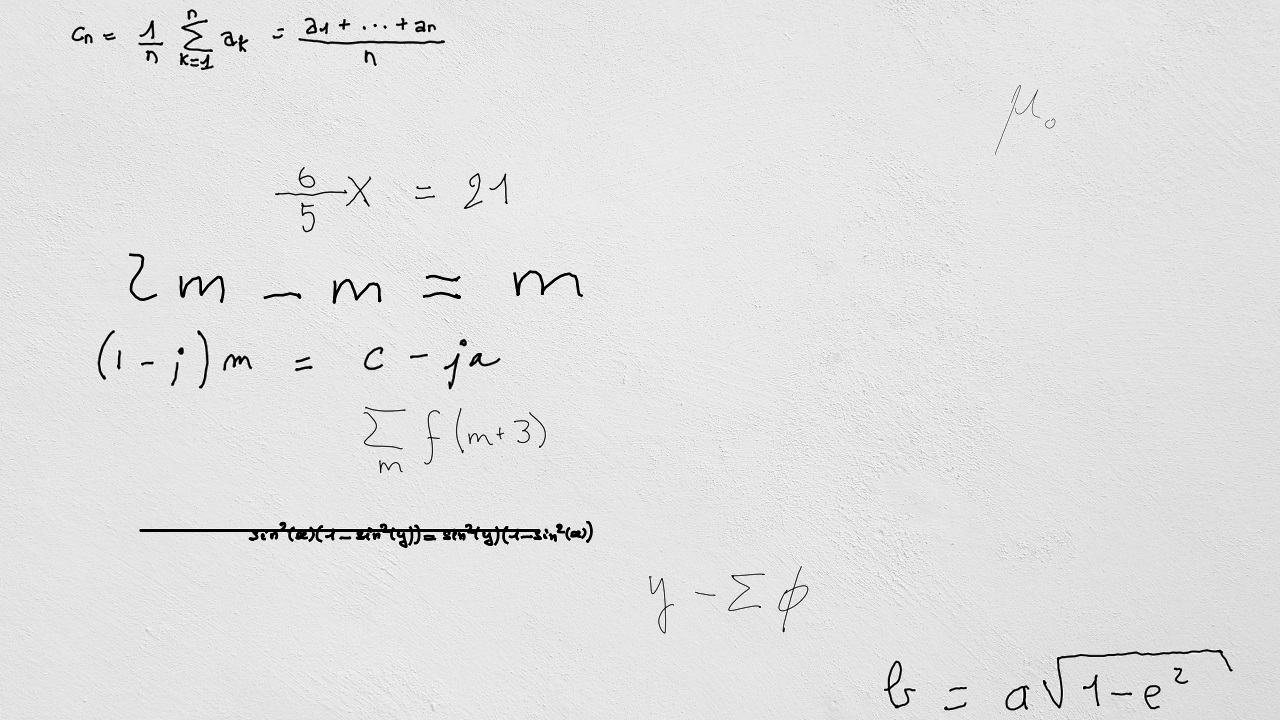 c_n = \frac{1}{n} \sum_{k=1}^{n} a_k = \frac{a_1 + \cdots + a_n}{n}
\mu_0
\frac{6}{5} x = 21
2m - m \approx m
(1 - j)m = c - ja
\sum_m f(m+3)
sin^2(x)(1-sin^2(y))=sin^2(y)(1-sin^2(x))
y - \Sigma \phi
b = a\sqrt{1-e^2}